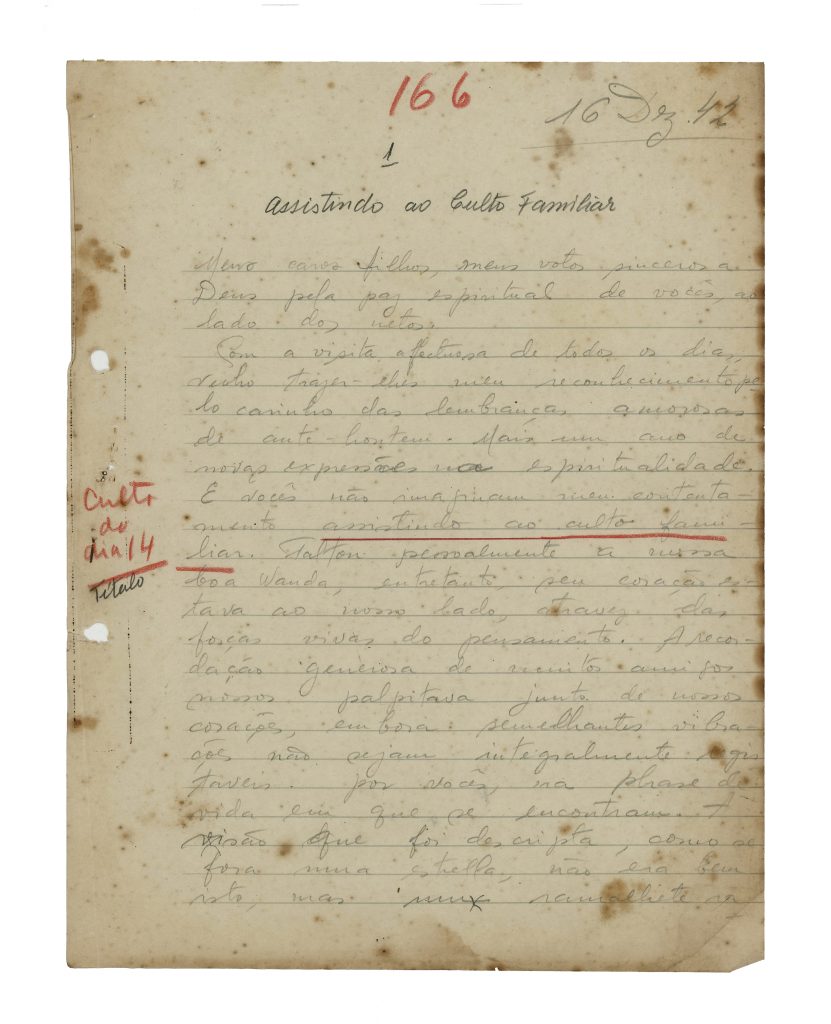 166
16 Dez. 42
1
Assistindo ao Culto Familiar
Meus caros filhos, meus votos sinceros a
Deus pela paz espiritual de vocês, ao
lado dos netos.
Com a visita affectuosa de todos os dias,
venho trazer-lhes meu reconhecimento pe
lo carinho das lembranças amorosas
de ante-hontem. Mais um ano de
novas expressões na espiritualidade.
E vocês não imaginam meu contenta-
mento assistindo ao culto fami-
liar. Faltou pessoalmente a nossa
boa Wanda, entretanto, seu coração es-
tava ao nosso lado, atravez das
forças vivas do pensamento. A recor-
dação generosa de muitos amigos
nossos palpitava junto de nossos
corações, embora semelhantes vibra-
ções não sejam integralmente regis
taveis por vocês, na phrase de
vida em que se encontram. A
visão que foi descripta, como se
fora uma estrella, não era bem
isto, mas ramalhete
Culto
do
dia 14
Titulo